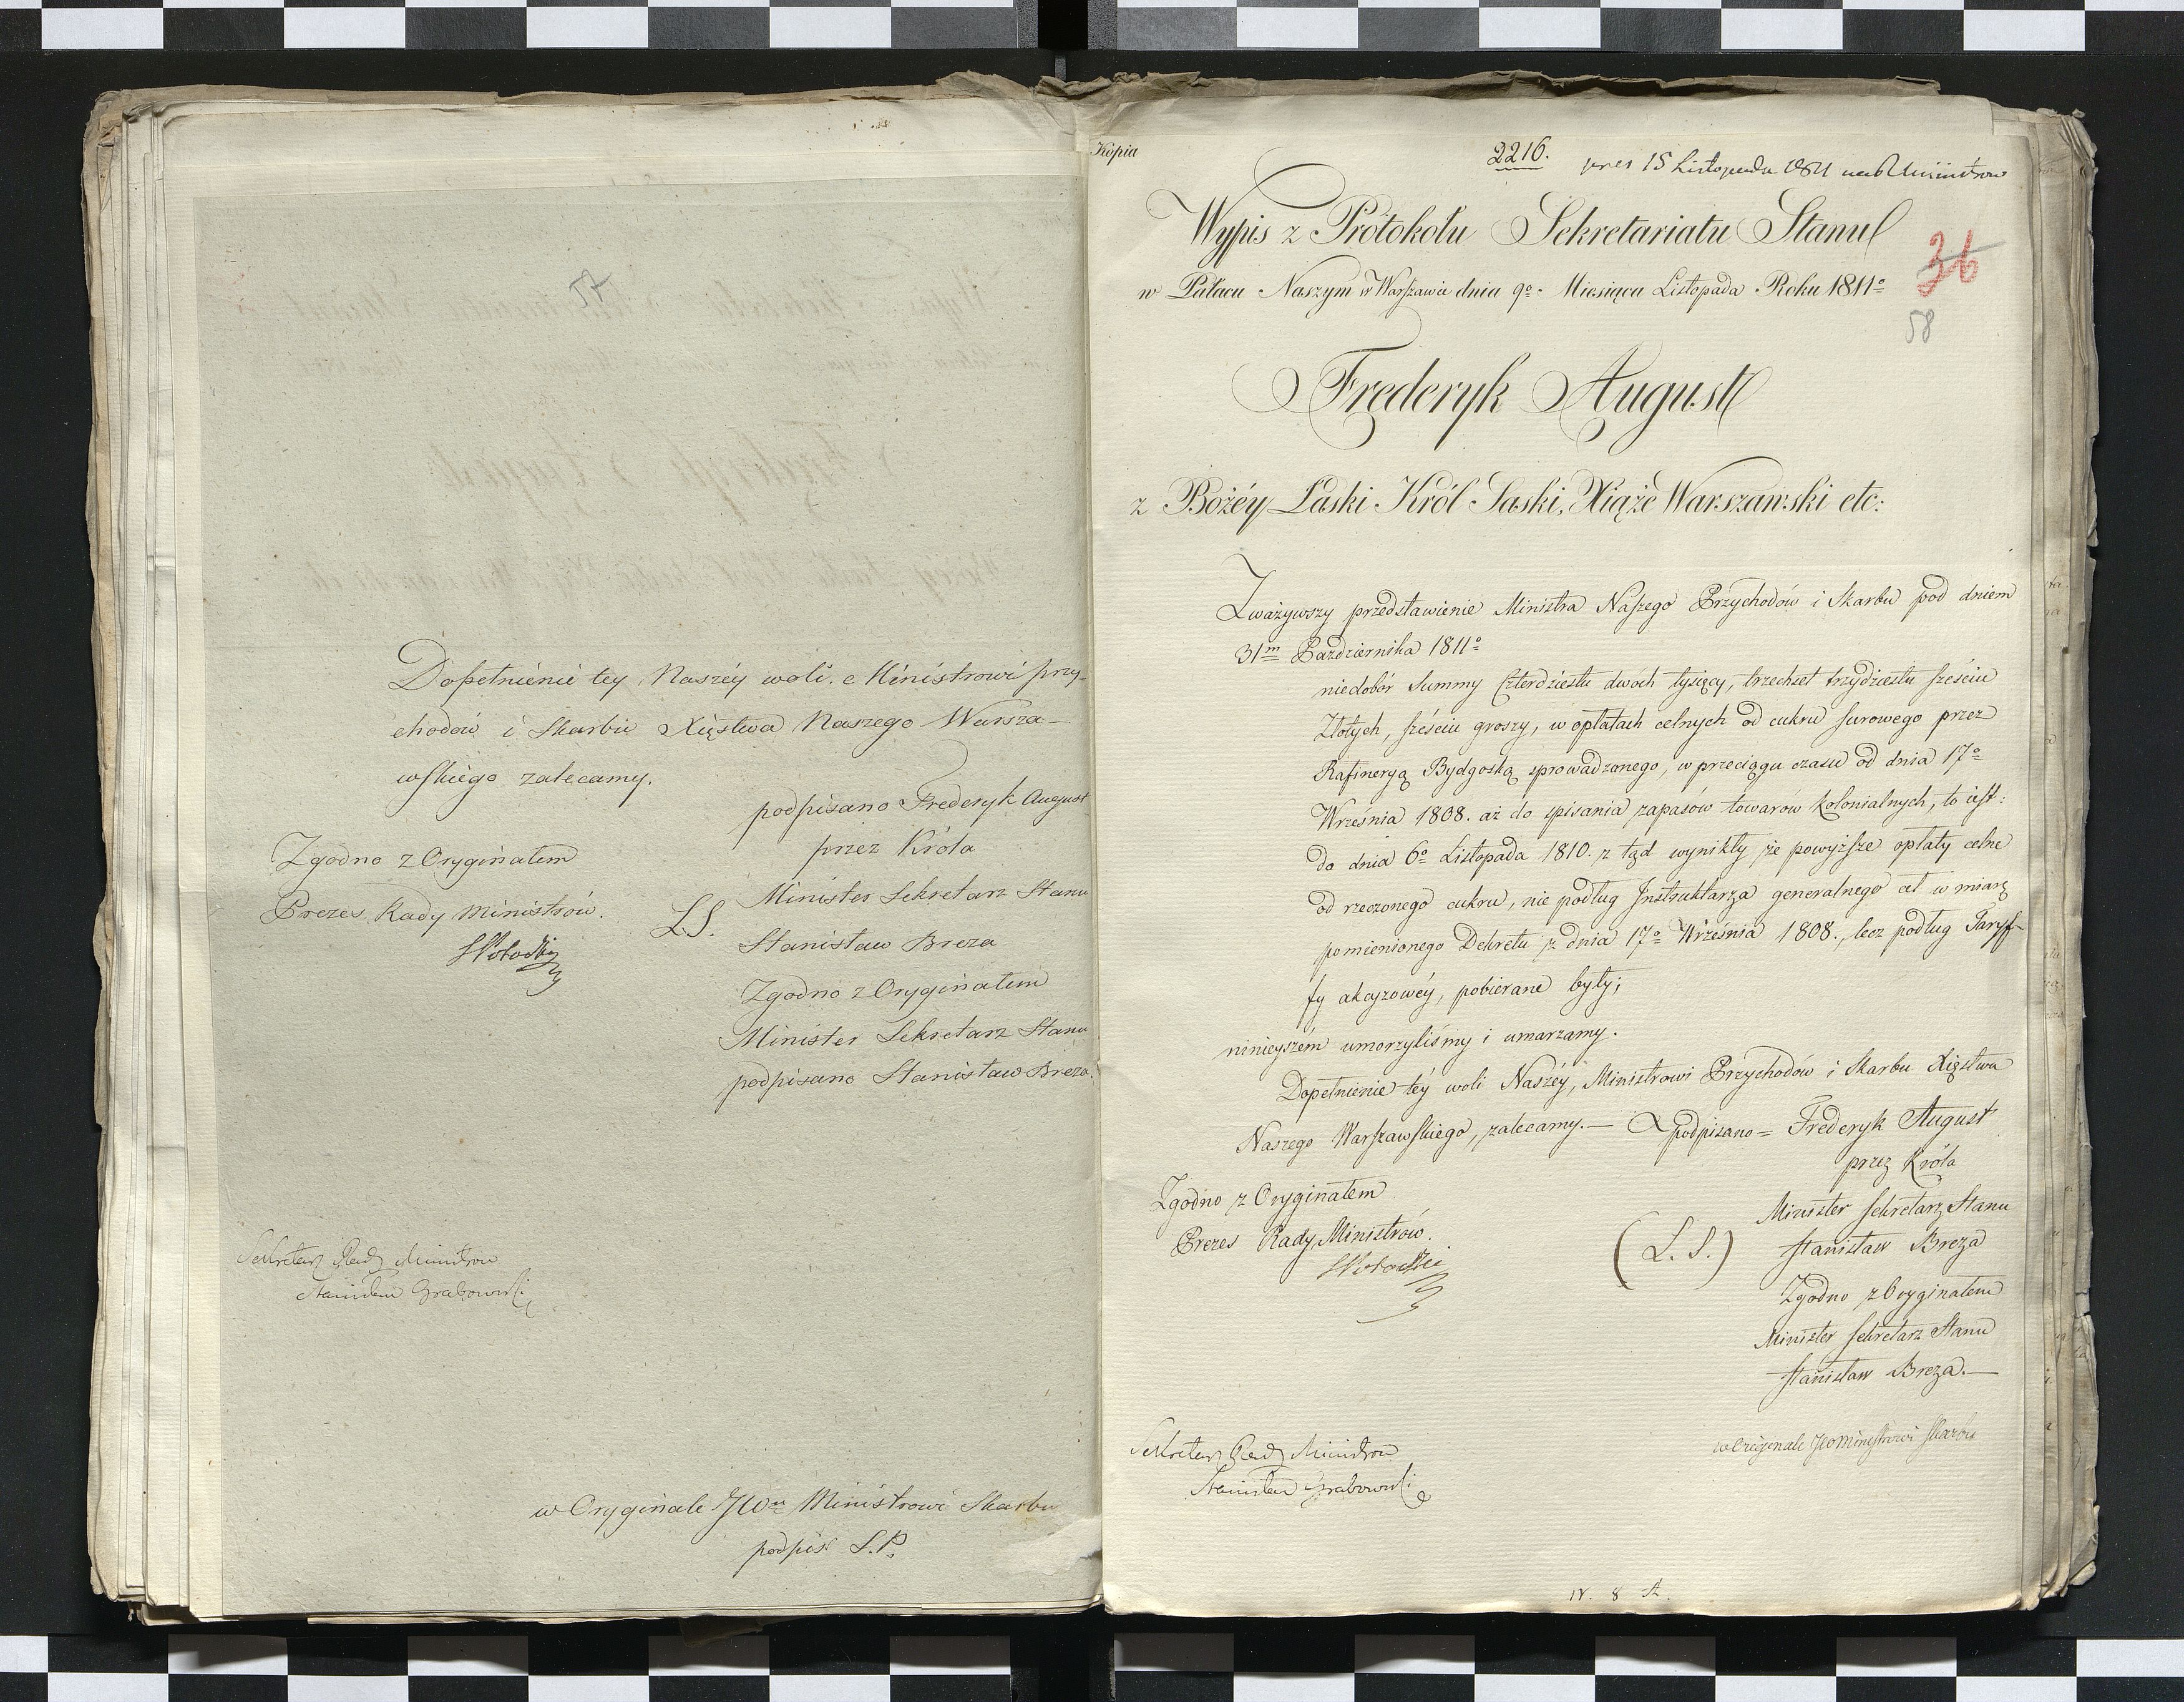 57
Dopełnienie tey Naszéy woli, Ministrowi przy-
chodów i Skarbu Xięstwa Naszego Warsza-
wskiego zalecamy.
podpisano Frederyk August
przez Króla
Minister Sekretarz Stanu
L.S.
Stanisław Breza
Zgodno z Oryginałem
Minister Sekretarz Stanu
podpisano Stanisław Breza.
Zgodno z Oryginałem
Prezes Rady Ministrów.
Sekretarz Rady Ministrów
Stanisław Grabowski
w Oryginale JWu Ministrowi Skarbu
podpis: S.P.
Kopia
2216.
pres 15 Listopada 1811
Wypis z Protokołu Sekretariatu Stanu
w Pałacu Naszym w Warszawie dnia 9o Miesiąca Listopada Roku 1811o
36
58
Frederyk August
z Bożéy Łaski Król Saski, Xiąże Warszawski etc:
Zważywszy przedstawienie Ministra Naszego Przychodów i Skarbu pod dniem
31m Października 1811o
niedobór Summy Czterdziestu dwóch tysięcy, trzechset trzydziestu sześciu
Złotych, sześciu groszy, w opłatach celnych od cukru surowego przez
Rafineryą Bydgoską sprowadzonego, w przeciągu czasu od dnia 17o
Września 1808. aż do spisania zapasów towarów kolonialnych, to iest:
do dnia 6o Listopada 1810. z tąd wynikły że powyższe opłaty celne
od rzeczonego cukru, nie podług Instruktarza generalnego ceł w miarę
pomienionego Dekretu z dnia 17o Września 1808., lecz podług Taryf-
fy akcyzowéy, pobierane były;
ninieyszém umorzyliśmy i umarzamy.
Dopełnienie téy woli Naszéy, Ministrowi Przychodów i Skarbu Xięstwa
Naszego Warszawskiego, zalecamy. — podpisano = Frederyk August
przez Króla
Zgodno z Oryginałem
Prezes Rady Ministrów.
Minister Sekretarz Stanu
(L. S.)
Stanisław Breza
Zgodno z Oryginałem
Minister Sekretarz Stanu
Stanisław Breza.—
w Oryginale JWo Ministrowi Skarbu
Sekretarz Rady Ministrów
Stanisław Grabowski